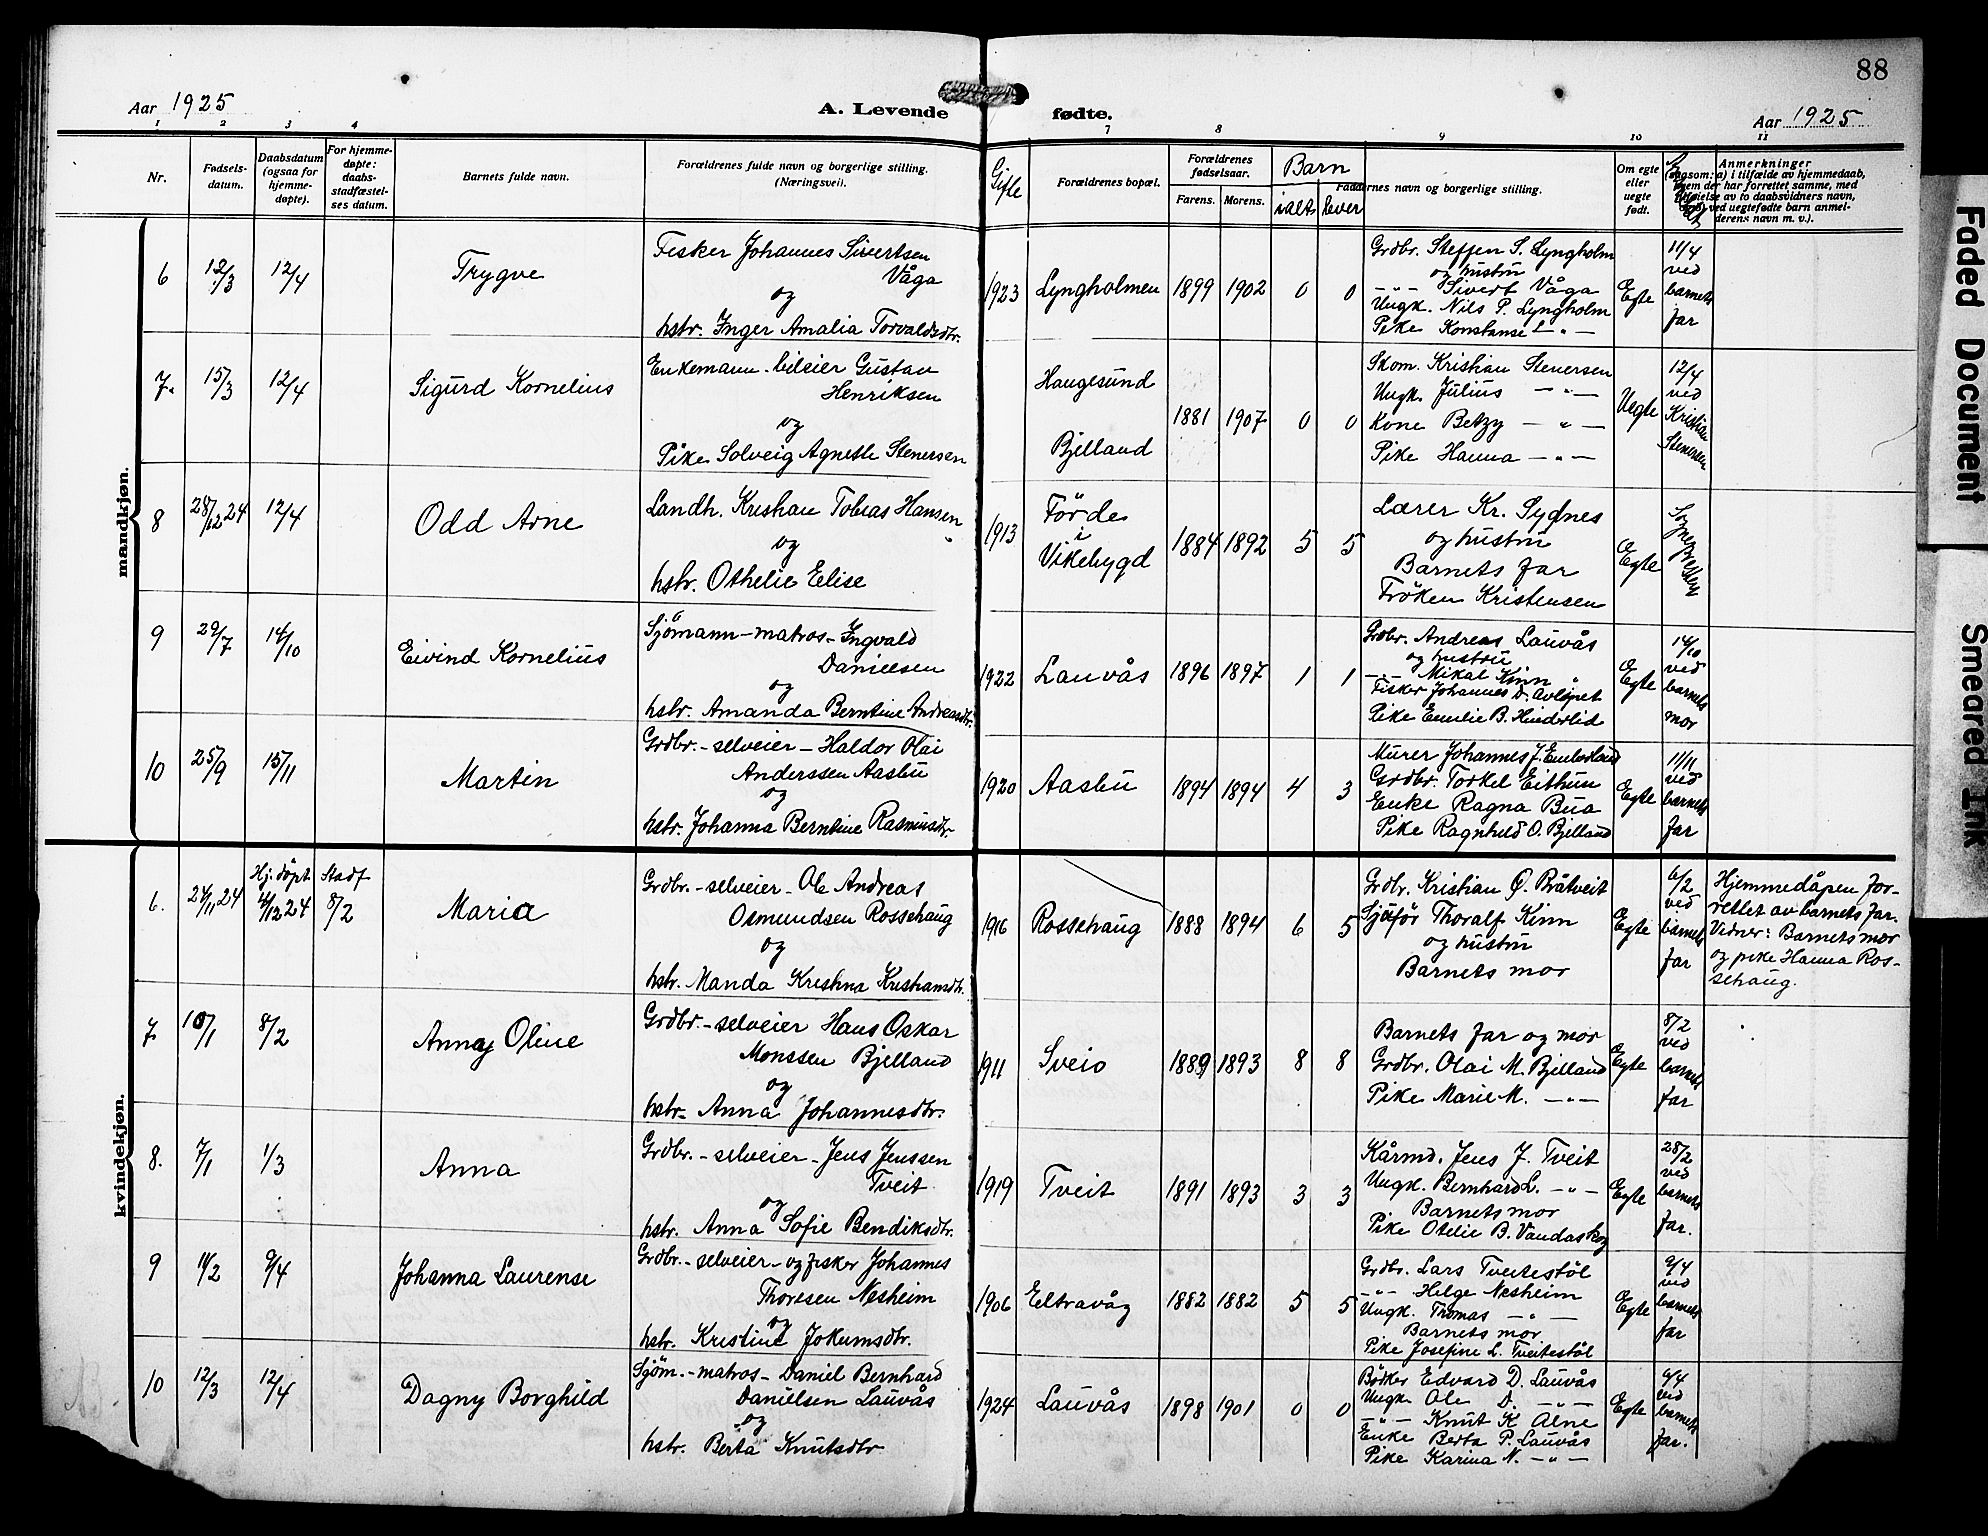 88
Aar 1925
A. Levende fødte.
Aar 1925
1 2 3 4 7 8 9 10 11
Nr.
Fødsels-
datum.
Daabsdatum
(ogsaa for
hjemme-
døpte).
For hjemme-
døpte:
daabs-
stadfæstel-
ses datum.
Barnets fulde navn.
Forældrenes fulde navn og borgerlige stilling.
(Næringsvei).
Gifte
Forældrenes bopæl.
Forældrenes
fødselsaar.
Farens. Morens.
Barn
ialt lever
Faddernes navn og borgerlige stilling.
Om egte
eller
uegte
født.
Anmerkninger
mandkjøn.
6 12/3 12/4 Trygve
Fisker Johannes Sivertsen
Våga
og
hstr. Inger Amalia Torvaldsdtr.
1923 Lyngholmen 1899 1902 0 0
Grdbr. Steffen S. Lyngholm
og hustru
-"- Sivert Våga
Ungk. Nils P. Lyngholm
Pike Konstanse -"-
Egte
11/4
ved
barnets
far
7. 15/3 12/4 Sigurd Kornelius
Enkemann - bileier Gustav
Henriksen
og
Pike Solveig Agnethe Stenersen
Haugesund
Bjelland
1881 1907 0 0
Skom. Kristian Stenersen
Ungk. Julius -"-
Kone Betzy -"-
Pike Hanna -"-
Uegte
12/4
ved
Kristian
Stenersen
8 28/12 24 12/4 Odd Arne
Landh. Kristian Tobias Hansen
og
hstr. Othelie Elise
1913 Förde
i
Vikebygd
1884 1892 5 5
Lærer Kr. Sydnes
og hustru
Barnets far
Fröken Kristensen
Egte
Sognepresten
9 29/7 14/10 Eivind Kornelius
Sjömann - matros - Ingvald
Danielsen
og
hstr. Amanda Berntine Andreasdtr.
1922 Lauvås 1896 1897 1 1
Grdbr. Andreas Lauvås
og hustru
-"- Mikal Kinn
Fisker Johannes D. Avløpet
Pike Emilie B. Hunderlid
Egte
14/10
ved
barnets
mor
10 25/9 15/11 Martin
Grdbr. - selveier - Haldor Olai
Anderssen Aasbu
og
hstr. Johanna Berntine Rasmusdtr.
1920 Aasbu 1894 1894 4 3
Murer Johannes J.
Grdbr. Torkel Eithun
Enke Ragna Bua
Pike Ragnhild O. Bjelland
Egte
11/11
ved
barnets
far
kvindekjøn.
6. 24/11 24 Hj. döpt 4/12 24 Stadf 8/2 Maria
Grdbr. - selveier - Ole Andreas
Osmundsen Rossehaug
og
hstr. Manda Kristina Kristiansdtr.
1916 Rossehaug 1888 1894 6 5
Grdbr. Kristian Ö. Bråtveit
Sjåför Thoralf Kinn
og hustru
Barnets mor
Egte
6/2
ved
barnets
far
Hjemmedåpen for-
rettet av barnets far.
Vidner: Barnets mor
og pike Hanna Ros-
sehaug.
7 10/1 8/2 Anny Oline
Grdbr. - selveier Hans Oskar
Monssen Bjelland
og
hstr. Anna Johannesdtr.
1911 Sveio 1889 1893 8 8
Barnets far og mor
Grdbr. Olai M. Bjelland
Pike Marie M. -"-
Egte
8/2
ved
barnets
far
8. 7/1 1/3 Anna
Grdbr. - selveier - Jens Jenssen
Tveit
og
hstr. Anna Sofie Bendiksdtr.
1919 Tveit 1891 1893 3 3
Kårmd. Jens J. Tveit
Ungk. Bernhard L. -"-
Barnets mor
Pike Otelie B. Vandaskog
Egte
28/2
ved
barnets
far.
9 11/2 9/4 Johanna Laurense
Grdbr. - selveier - og fisker Johannes
Thoresen Nesheim
og
hstr. Kristine Jokumsdtr.
1906 Eltravåg 1882 1882 5 5
Grdbr. Lars Tveitestöl
-"- Helge Nesheim
Ungk. Thomas -"-
Barnets mor
Pike Josefine L. Tveitestöl
Egte
9/4
ved
barnets
far
10 12/3 12/4 Dagny Borghild
Sjöm. - matros - Daniel Bernhard
Danielsen Lauvås
og
hstr. Berta Knutsdtr
1924 Lauvås 1898 1901 0 0
Bödker Edvard D. Lauvås
Ungk. Ole D. -"-
-"- Knut K Alne
Enke Berta P. Lauvås
Pike Karina N. -"-
Egte
9/4
ved
barnets
far.
Faded Document
Smeared Ink